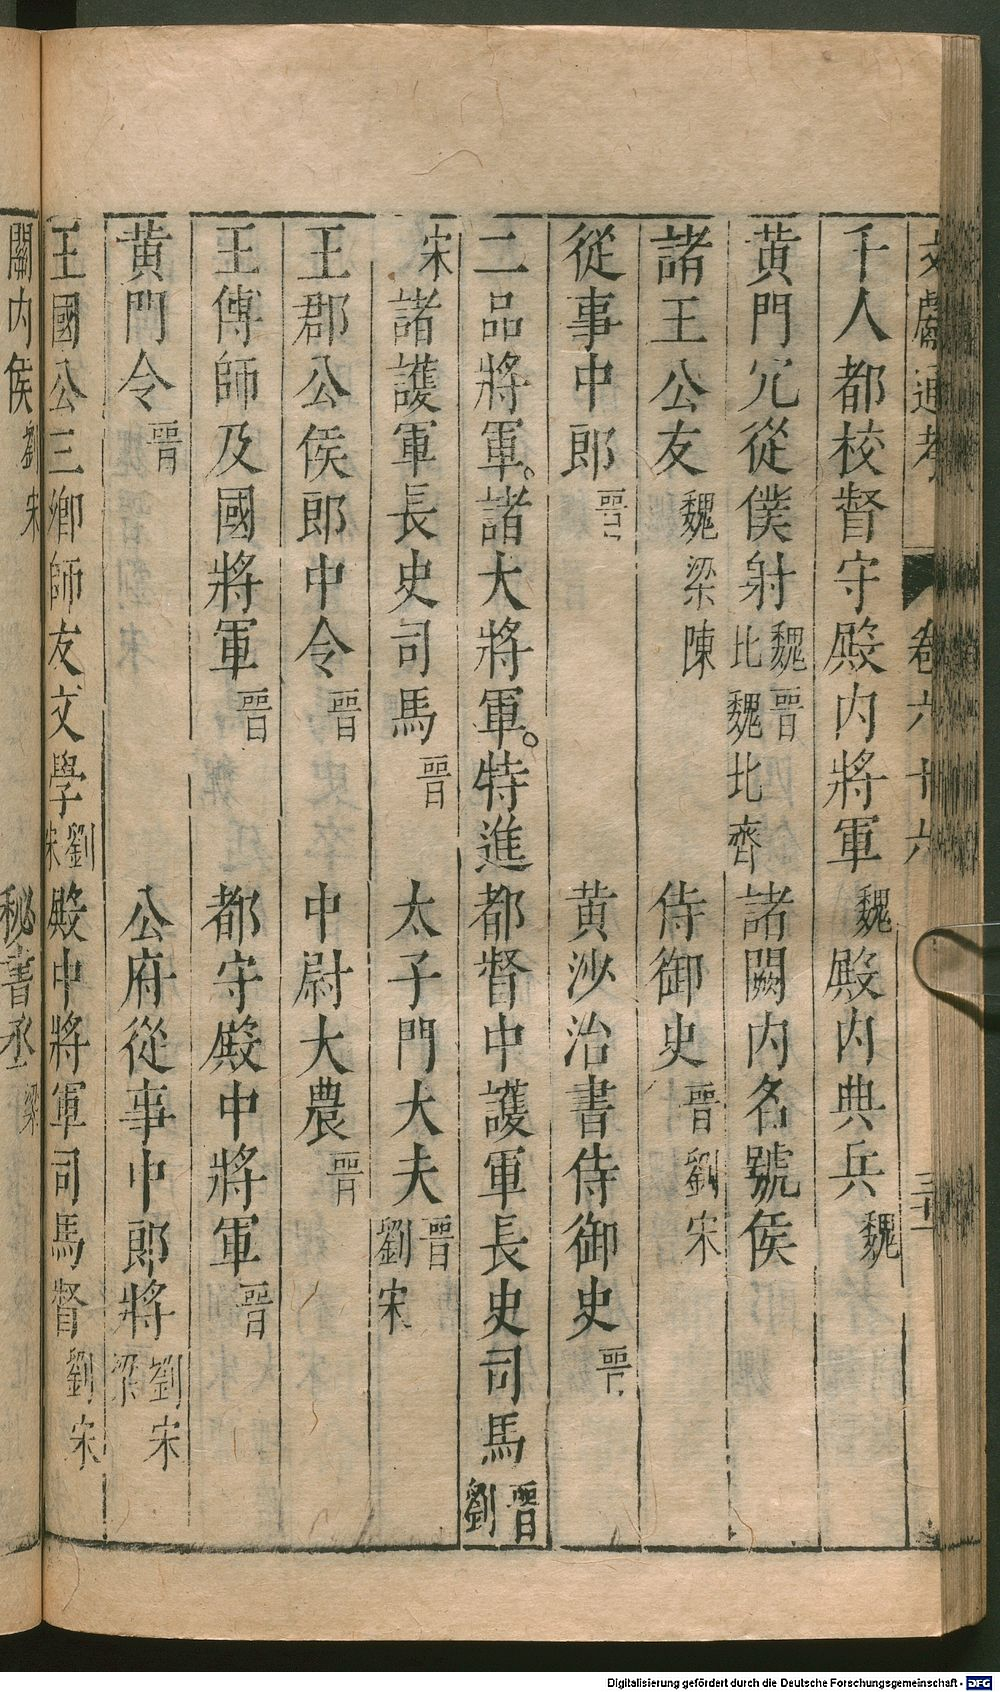 文獻通考 卷六十六
千人都校督守殿内將軍魏殿内典兵魏
黃門冗從僕射魏晉北魏北齊諸闕内名號侯
諸王公友魏梁陳 侍御史晉劉宋
從事中郎晉 黃沙治書侍御史晉
二品將軍。諸大將軍。特進都督中護軍長史司馬晉劉
宋諸護軍長史司馬晉 太子門大夫晉劉宋
王郡公侯郎中令晉 中尉大農晉
王傅師及國將軍晉 都守殿中將軍晉
黃門令晉 公府從事中郎將劉宋梁
王國公三卿師友文學劉宋殿中將軍司馬督劉宋
關内侯劉宋 秘書丞梁
Digitalisierung gefördert durch die Deutsche Forschungsgemeinschaft - DFG